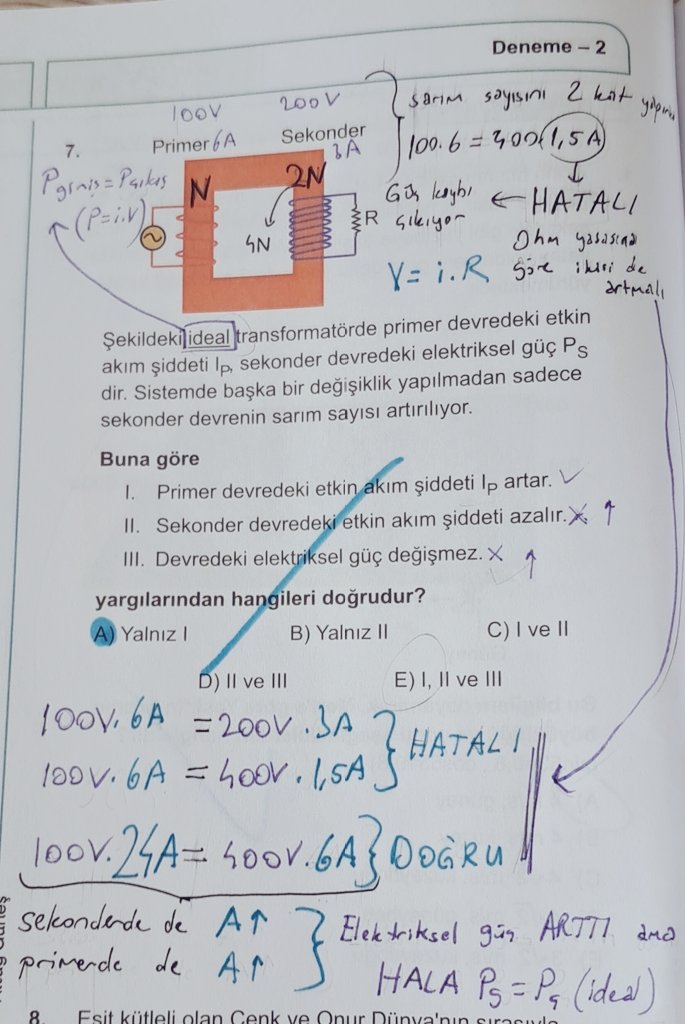 Deneme – 2
sarım sayısını 2 kat
100V 200V
7. Primer 6A Sekonder 3A
100.6 = 400(1,5A)
Pgiriş = Pçıkış
(P=i.V)
N
2N
4N
R
Güç kaybı çıkıyor ← HATALI
V = i.R
Ohm yasasına göre ikisi de artmalı
Şekildeki ideal transformatörde primer devredeki etkin
akım şiddeti IP, sekonder devredeki elektriksel güç PS
dir. Sistemde başka bir değişiklik yapılmadan sadece
sekonder devrenin sarım sayısı artırılıyor.
Buna göre
I. Primer devredeki etkin akım şiddeti IP artar. ✓
II. Sekonder devredeki etkin akım şiddeti azalır. X ↑
III. Devredeki elektriksel güç değişmez. X ↑
yargılarından hangileri doğrudur?
A) Yalnız I B) Yalnız II C) I ve II
D) II ve III E) I, II ve III
100V. 6A = 200V. 3A
100V. 6A = 400V. 1,5A } HATALI
100V. 24A = 400V. 6A } DOĞRU
sekonderde de A↑
primerde de A↑
Elektriksel güç ARTTI ama
HALA Pş = Pg (ideal)
8. Eşit kütleli olan Cenk ve Onur Dünya'nın sırasıyla